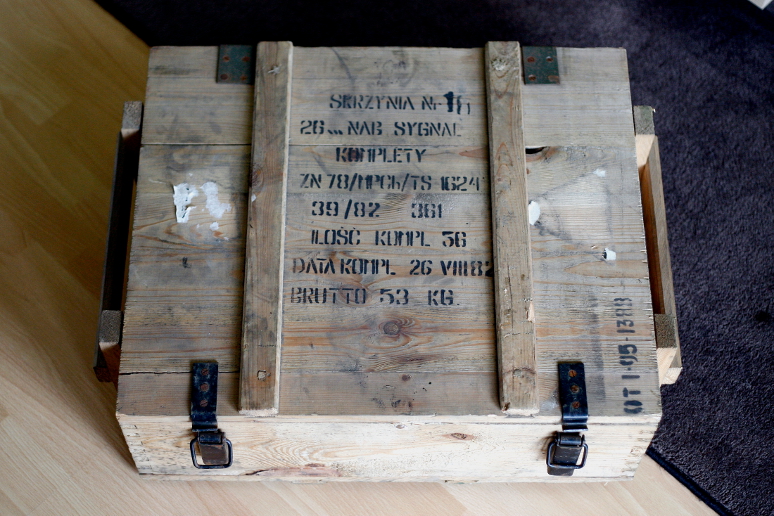 SKRZYNIA Nr
26 NAB SYGNAŁ
KOMPLETY
ZN 78/MPCh/TS 1624
39/82 361
ILOŚĆ KOMPL 36
DATA KOMPL 26 VIII 82
BRUTTO 53 KG.
OT 1-95-1388